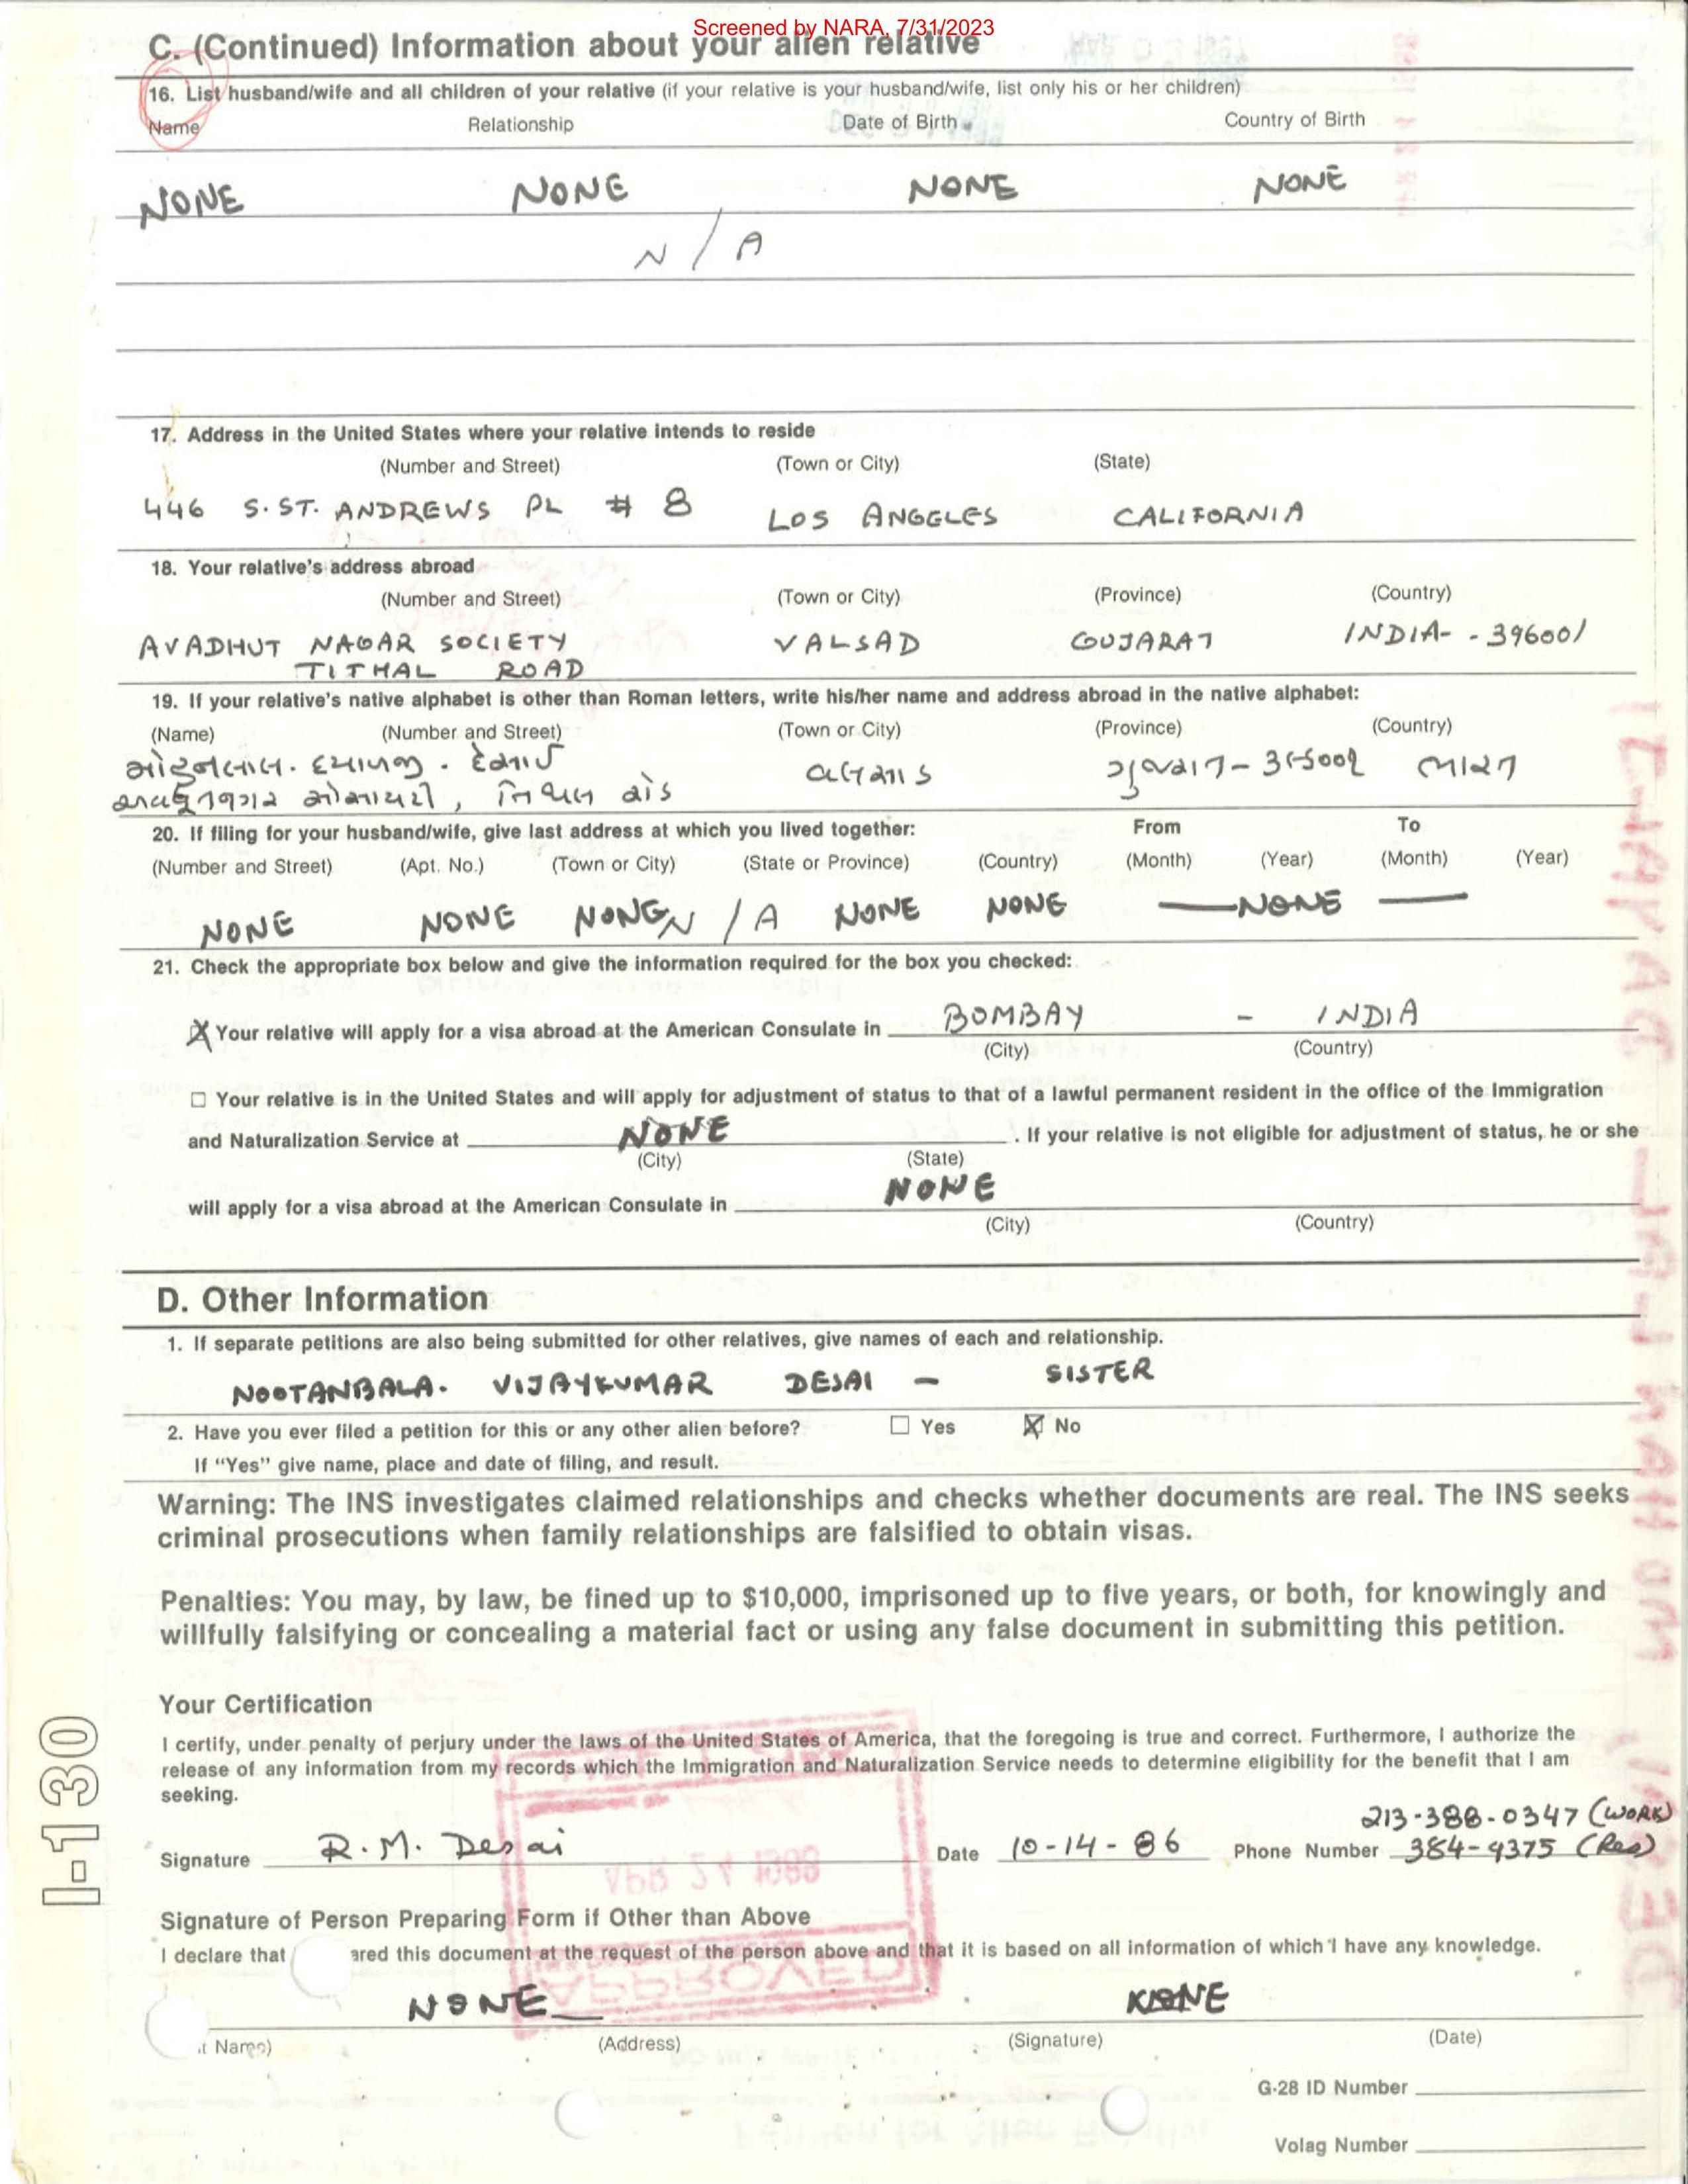 Screened by NARA, 7/31/2023
C. (Continued) Information about your alien relative
16. List husband/wife and all children of your relative (if your relative is your husband/wife, list only his or her children)
Name Relationship Date of Birth Country of Birth
NONE NONE NONE NONE
N/A
17. Address in the United States where your relative intends to reside
(Number and Street) (Town or City) (State)
446 S. ST. ANDREWS PL # 8 LOS ANGELES CALIFORNIA
18. Your relative's address abroad
(Number and Street) (Town or City) (Province) (Country)
AVADHUT NAGAR SOCIETY VALSAD GUJARAT INDIA - 396001
TITHAL ROAD
19. If your relative's native alphabet is other than Roman letters, write his/her name and address abroad in the native alphabet:
(Name) (Number and Street) (Town or City) (Province) (Country)
મોહનલાલ. દયાળજી. દેસાઈ વલસાડ ગુજરાત - ૩૯૬૦૦૧ ભારત
અવધૂતનગર સોસાયટી, તિથલ રોડ
20. If filing for your husband/wife, give last address at which you lived together: From To
(Number and Street) (Apt. No.) (Town or City) (State or Province) (Country) (Month) (Year) (Month) (Year)
NONE NONE NONE N/A NONE NONE — NONE —
21. Check the appropriate box below and give the information required for the box you checked:
Your relative will apply for a visa abroad at the American Consulate in BOMBAY - INDIA
(City) (Country)
Your relative is in the United States and will apply for adjustment of status to that of a lawful permanent resident in the office of the Immigration
and Naturalization Service at NONE . If your relative is not eligible for adjustment of status, he or she
(City) (State)
will apply for a visa abroad at the American Consulate in NONE
(City) (Country)
D. Other Information
1. If separate petitions are also being submitted for other relatives, give names of each and relationship.
NOOTANBALA. VIJAYKUMAR DESAI - SISTER
2. Have you ever filed a petition for this or any other alien before? Yes No
If "Yes" give name, place and date of filing, and result.
Warning: The INS investigates claimed relationships and checks whether documents are real. The INS seeks
criminal prosecutions when family relationships are falsified to obtain visas.
Penalties: You may, by law, be fined up to $10,000, imprisoned up to five years, or both, for knowingly and
willfully falsifying or concealing a material fact or using any false document in submitting this petition.
Your Certification
I certify, under penalty of perjury under the laws of the United States of America, that the foregoing is true and correct. Furthermore, I authorize the
release of any information from my records which the Immigration and Naturalization Service needs to determine eligibility for the benefit that I am
seeking.
213-388-0347 (WORK)
Signature R. M. Desai Date 10-14-86 Phone Number 384-9375 (Res)
Signature of Person Preparing Form if Other than Above
I declare that ared this document at the request of the person above and that it is based on all information of which I have any knowledge.
NONE NONE
t Name) (Address) (Signature) (Date)
G-28 ID Number
Volag Number
I-130